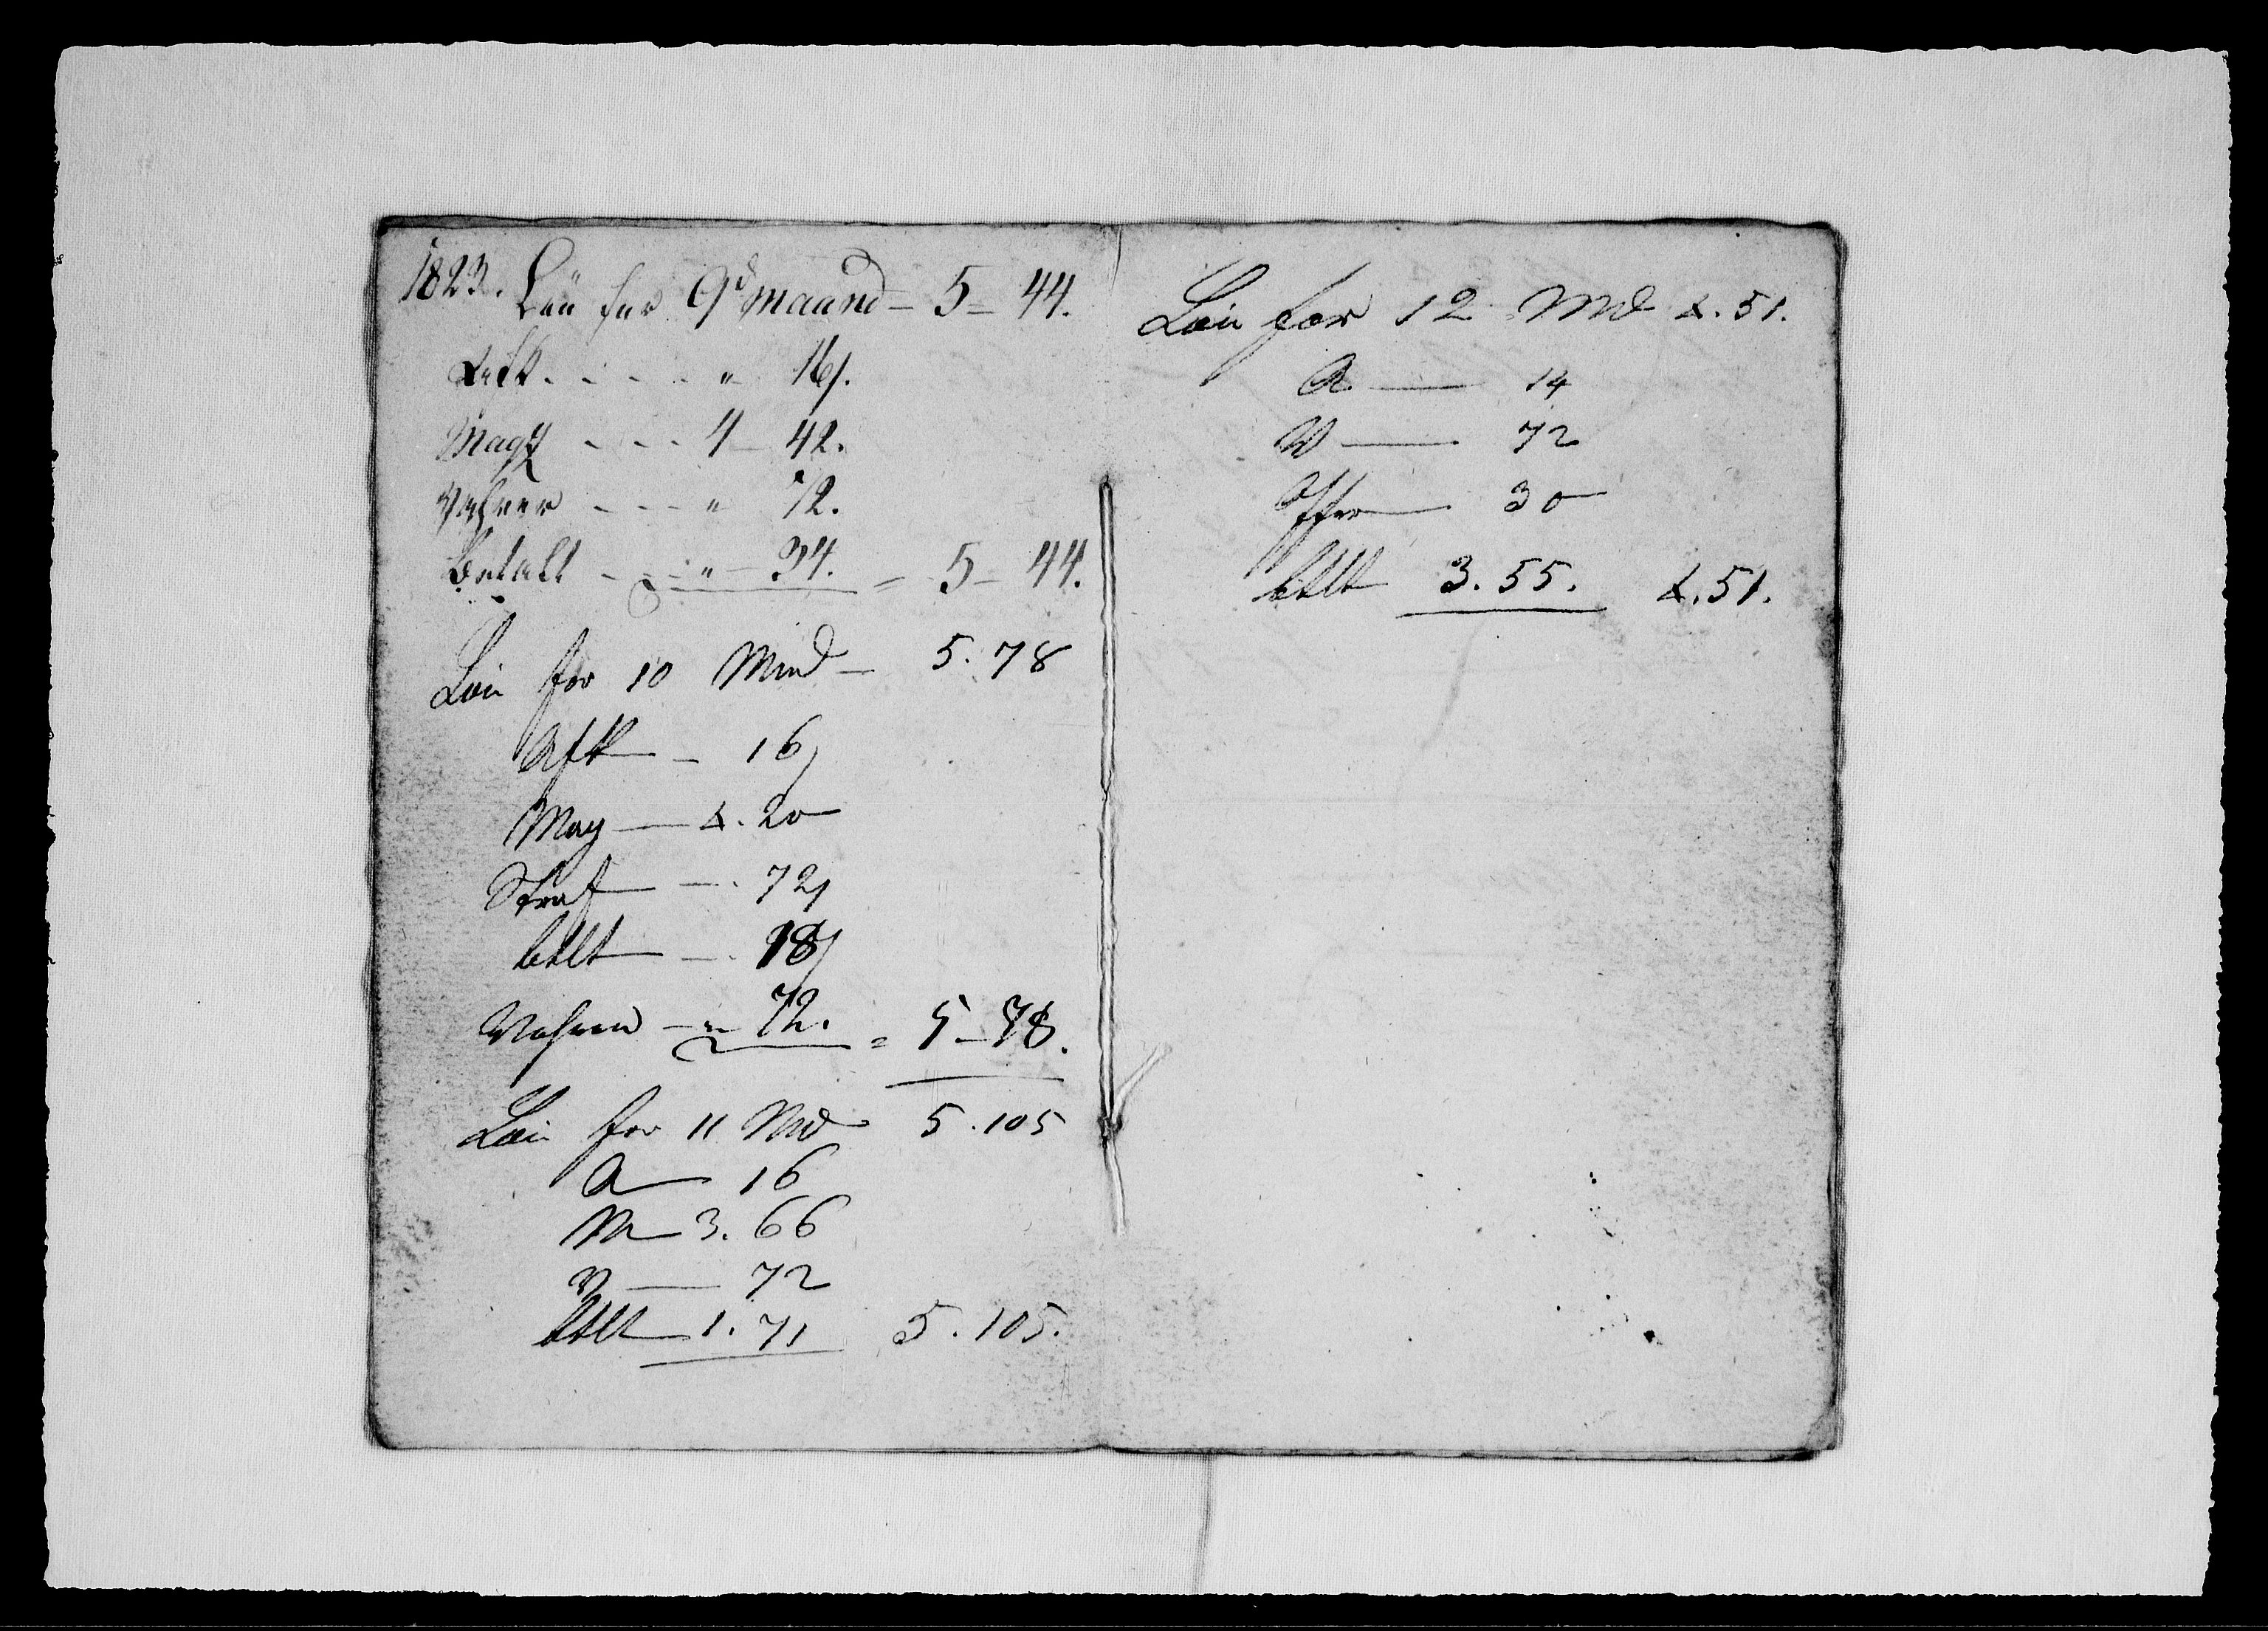 1823. Løn for 9d maaned = 5 - 44.
Afk. - - - " 16.
Magz - - - 4 - 42.
Vahrer - - - " 72.
Betalt - - - " - 34. = 5 - 44.
Løn for 10 Mnd - 5. 78
Afk - 16
Mag - 4. 20
Straf - 72
betlt - 18
Vahrer - " 72. = 5 - 78.
Løn for 11 Md 5. 105
A - 16
M - 3. 66
V - 72
betlt 1. 71 5. 105.
Løn for 12 Md 4. 51.
A - 14
V - 72
Offer - 30
betlt 3. 55. 4. 51.